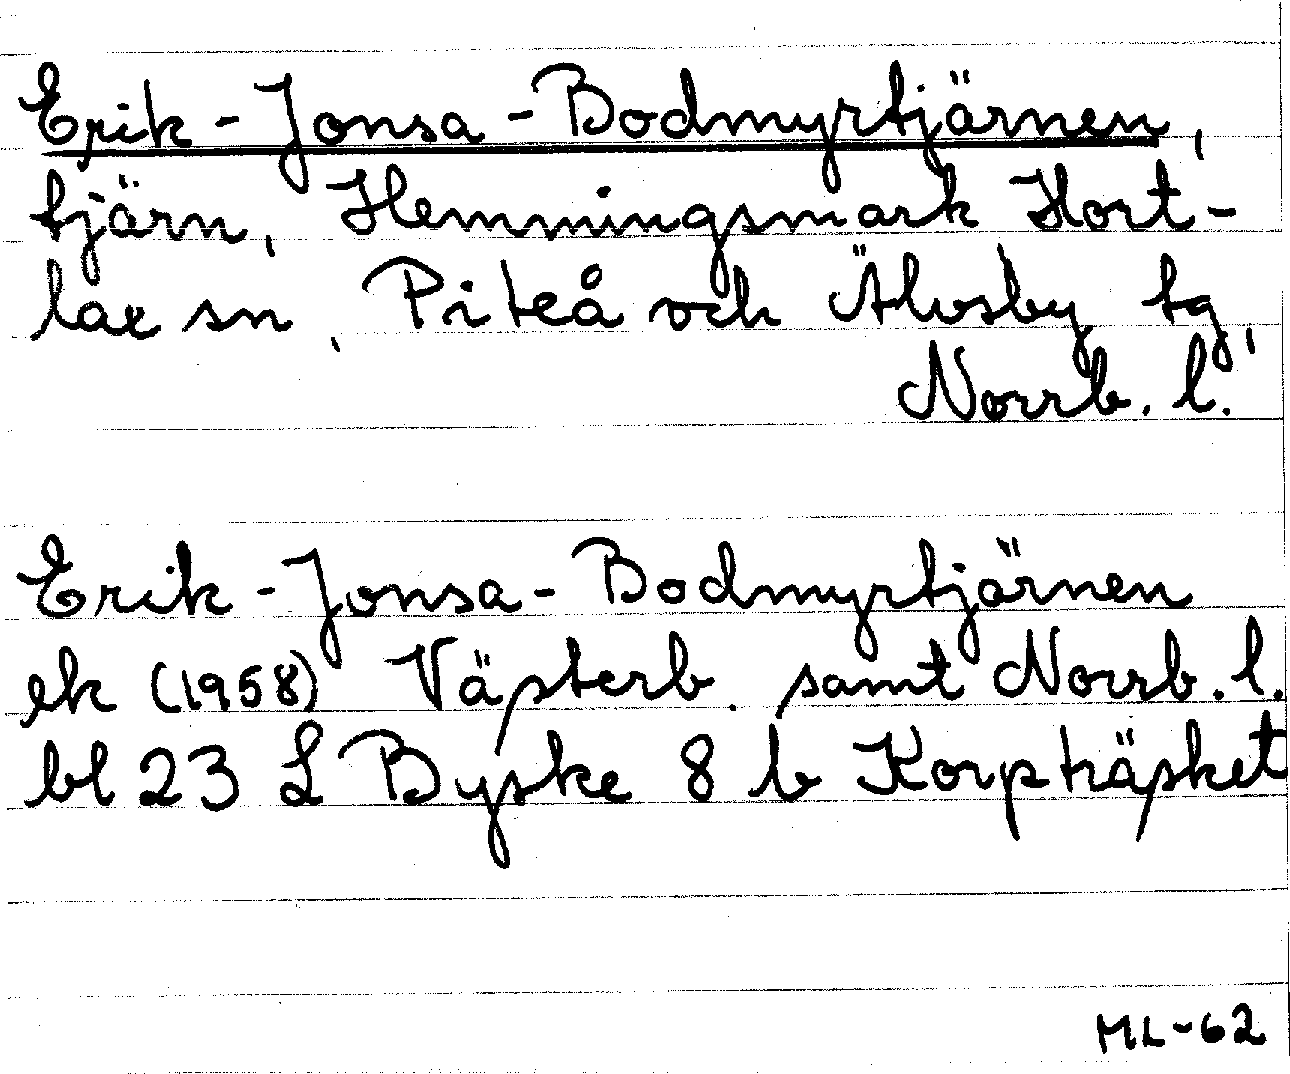 Erik-Jonsa-Bodmyrtjärnen,
tjärn, Hemmingsmark Hort-
lax sn, Piteå och Älvsby tg,
Norrb. l.
Erik-Jonsa-Bodmyrtjärnen
ek (1958) Västerb. samt Norrb. l.
bl 23 L Byske 8 b Korpträsket
ML-62